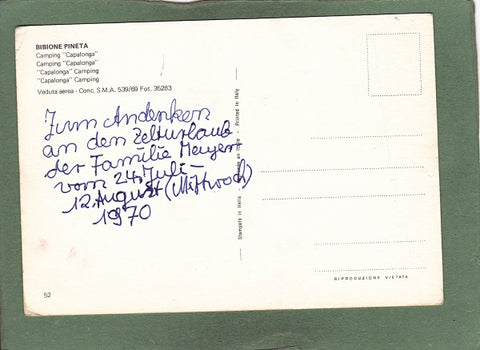 BIBIONE PINETA
Camping "Capalonga"
Camping "Capalonga"
"Capalonga" Camping
"Capalonga" Camping
Veduta aerea - Conc. S.M.A. 539/69 Fot. 35283
Zum Andenken
an den Zelturlaub
der Familie Mayer
vom 24. Juli –
12. August (Mittwoch)
1970
52
Stampato in Italia
Printed in Italy
RIPRODUZIONE VIETATA